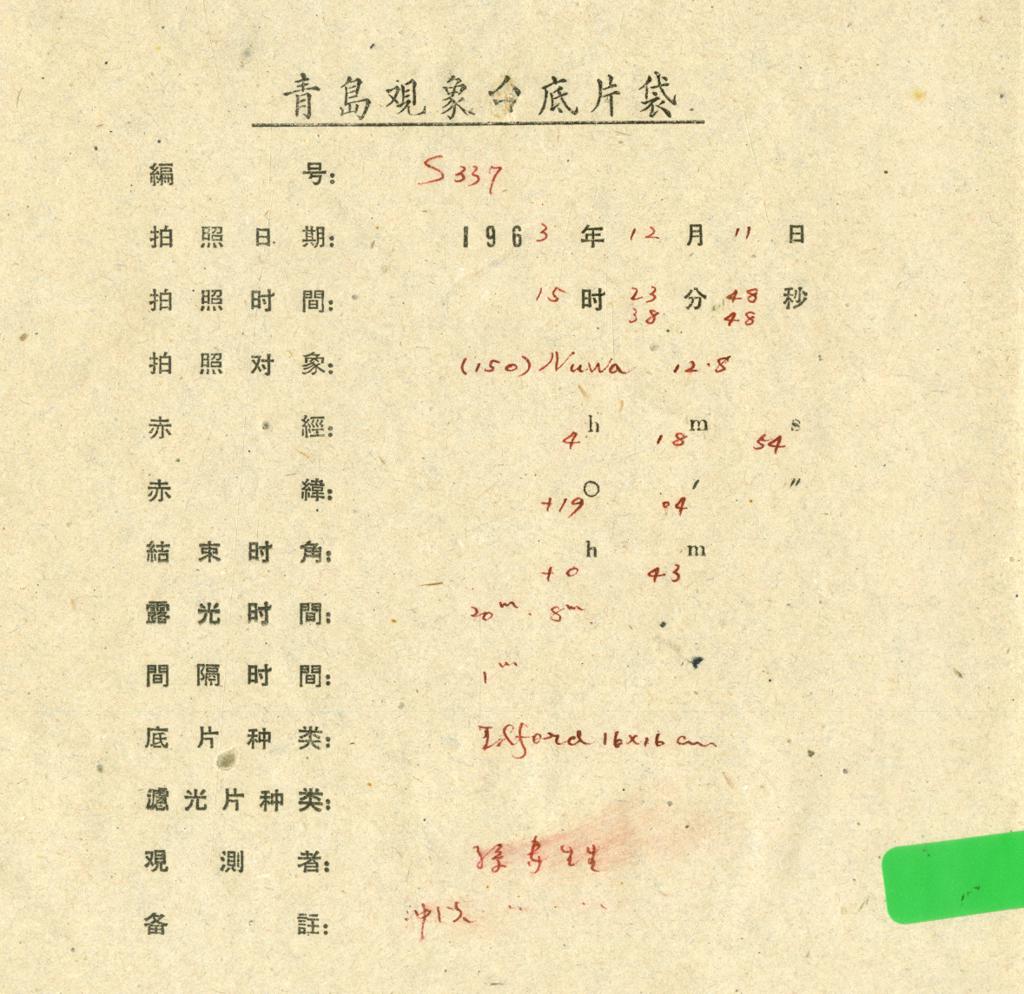 青島观象台底片袋
編号: S337
拍照日期: 1963年12月11日
拍照时間: 15时23分48秒
38 48
拍照对象: (150) Nuwa 12.8
赤經: 4h 18m 54s
赤緯: +19° 04′ ″
結束时角: +0h 43m
露光时間: 20m. 8m
間隔时間: 1m
底片种类: Ilford 16x16 cm
濾光片种类:
观測者: 孫寿生
备註: 冲